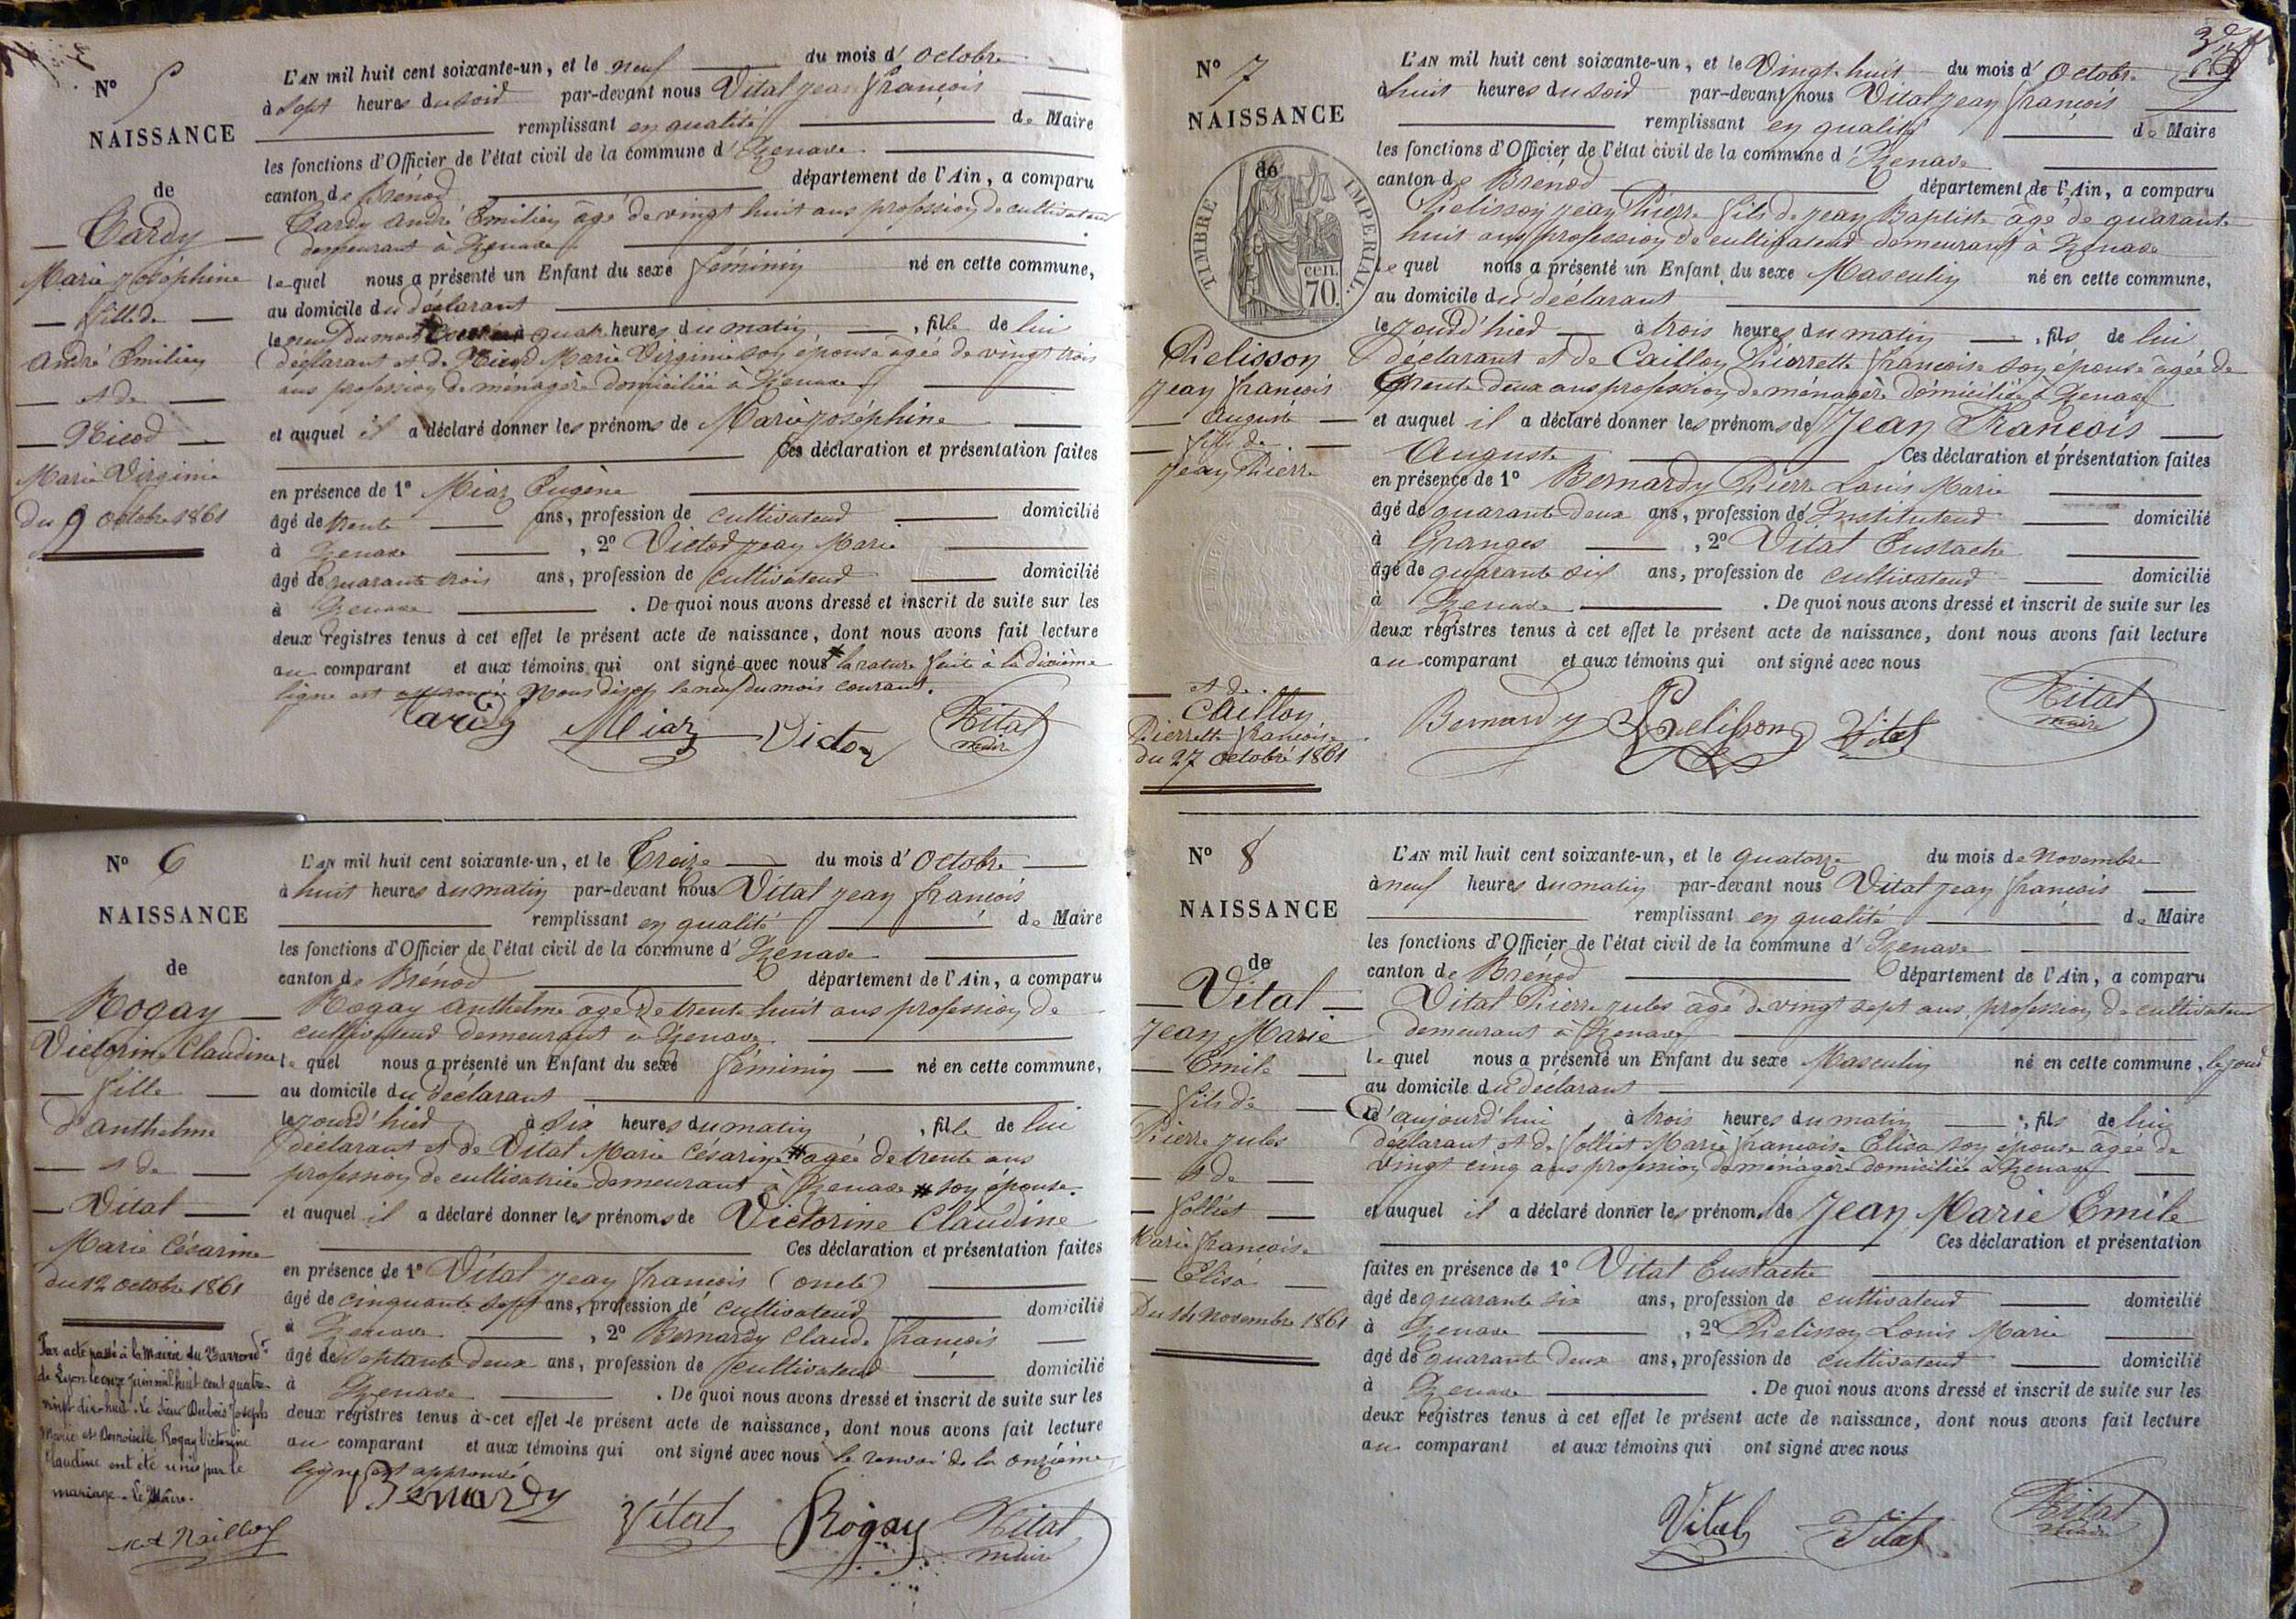 N° 5
NAISSANCE
de
Cardy
Marie Joséphine
fille de
André Emilien
et de
Nicod
Marie Virginie
du 9 octobre 1861
L'AN mil huit cent soixante-un, et le neuf du mois d'octobre
à sept heures du soir par-devant nous Vital Jean François
remplissant en qualité de Maire
les fonctions d'Officier de l'état civil de la commune d'Izenave
canton de Brénod département de l'Ain, a comparu
Cardy André Emilien âgé de vingt huit ans profession de cultivateur
demeurant à Izenave
lequel nous a présenté un Enfant du sexe féminin né en cette commune,
au domicile du déclarant
le neuf du mois à quatre heures du matin, fille de lui
déclarant et de Nicod Marie Virginie son épouse âgée de vingt trois
ans profession de ménagère domiciliée à Izenave
et auquel il a déclaré donner les prénoms de Marie Joséphine
Ces déclaration et présentation faites
en présence de 1° Miaz Eugène
âgé de trente ans, profession de cultivateur domicilié
à Izenave, 2° Victor Jean Marie
âgé de quarante trois ans, profession de cultivateur domicilié
à Izenave. De quoi nous avons dressé et inscrit de suite sur les
deux registres tenus à cet effet le présent acte de naissance, dont nous avons fait lecture
au comparant et aux témoins qui ont signé avec nous * la rature faite à la dixième
ligne est approuvée Nous disons le neuf du mois courant.
Cardy Miaz Victor Vital
maire
N° 6
NAISSANCE
de
Rogay
Victorine Claudine
fille
d'anthelme
et de
Vital
Marie Césarine
du 12 octobre 1861
Par acte passé à la mairie du 2e arrond.t
de Lyon le onze juin mil huit cent quatre
vingt dix-huit. Le sieur Dubois Joseph
Marie et Demoiselle Rogay Victorine
Claudine ont été unis par le
mariage. Le Maire.
L'AN mil huit cent soixante-un, et le Treize du mois d'octobre
à huit heures du matin par-devant nous Vital Jean François
remplissant en qualité de Maire
les fonctions d'Officier de l'état civil de la commune d'Izenave
canton de Brénod département de l'Ain, a comparu
Rogay anthelme âgé de trente huit ans profession de
cultivateur demeurant à Izenave
lequel nous a présenté un Enfant du sexe féminin né en cette commune,
au domicile du déclarant
le jourd'hier à six heures du matin, fille de lui
déclarant et de Vital Marie Césarine # âgée de trente ans
profession de cultivatrice demeurant à Izenave # son épouse.
et auquel il a déclaré donner les prénoms de Victorine Claudine
Ces déclaration et présentation faites
en présence de 1° Vital Jean François (oncle)
âgé de cinquante sept ans, profession de cultivateur domicilié
à Izenave, 2° Bernardy Claude François
âgé de septante deux ans, profession de cultivateur domicilié
à Izenave. De quoi nous avons dressé et inscrit de suite sur les
deux registres tenus à cet effet le présent acte de naissance, dont nous avons fait lecture
au comparant et aux témoins qui ont signé avec nous le renvoi de la onzième
ligne est approuvé
Bernardy Vital Rogay Vital
maire
N° 7
NAISSANCE
de
TIMBRE IMPERIAL
70 cen.
Pelisson
Jean François
Auguste
fils de
Jean Pierre
et de
Caillon
Pierrette Françoise
du 27 octobre 1861
L'AN mil huit cent soixante-un, et le Vingt-huit du mois d'octobre
à huit heures du soir par-devant nous Vital Jean François
remplissant en qualité de Maire
les fonctions d'Officier de l'état civil de la commune d'Izenave
canton de Brénod département de l'Ain, a comparu
Pelisson Jean Pierre fils de Jean Baptiste âgé de quarante
huit ans profession de cultivateur demeurant à Izenave
lequel nous a présenté un Enfant du sexe Masculin né en cette commune,
au domicile du déclarant
le jourd'hier à trois heures du matin, fils de lui
déclarant et de Caillon Pierrette françoise son épouse âgée de
trente deux ans profession de ménagère domiciliée à Izenave
et auquel il a déclaré donner les prénoms de Jean François
Auguste Ces déclaration et présentation faites
en présence de 1° Bernardy Pierre Louis Marie
âgé de quarante deux ans, profession de Instituteur domicilié
à Granges, 2° Vital Eustache
âgé de quarante six ans, profession de cultivateur domicilié
à Izenave. De quoi nous avons dressé et inscrit de suite sur les
deux registres tenus à cet effet le présent acte de naissance, dont nous avons fait lecture
au comparant et aux témoins qui ont signé avec nous
Bernardy Pelisson Vital Vital
maire
N° 8
NAISSANCE
de
Vital
Jean Marie
Emile
fils de
Pierre Jules
et de
Jolliet
Marie françoise
Elisa
Du 14 Novembre 1861
L'AN mil huit cent soixante-un, et le quatorze du mois de Novembre
à neuf heures du matin par-devant nous Vital Jean François
remplissant en qualité de Maire
les fonctions d'Officier de l'état civil de la commune d'Izenave
canton de Brénod département de l'Ain, a comparu
Vital Pierre Jules âgé de vingt sept ans, profession de cultivateur
demeurant à Izenave
lequel nous a présenté un Enfant du sexe Masculin né en cette commune, le jour
au domicile du déclarant
d'aujourd'hui à trois heures du matin, fils de lui
déclarant et de Jolliet Marie françoise Elisa son épouse âgée de
vingt cinq ans profession de ménagère domiciliée à Izenave
et auquel il a déclaré donner les prénoms de Jean Marie Emile
Ces déclaration et présentation
faites en présence de 1° Vital Eustache
âgé de quarante six ans, profession de cultivateur domicilié
à Izenave, 2° Pelisson Louis Marie
âgé de quarante deux ans, profession de cultivateur domicilié
à Izenave. De quoi nous avons dressé et inscrit de suite sur les
deux registres tenus à cet effet le présent acte de naissance, dont nous avons fait lecture
au comparant et aux témoins qui ont signé avec nous
Vital Vital Vital
maire